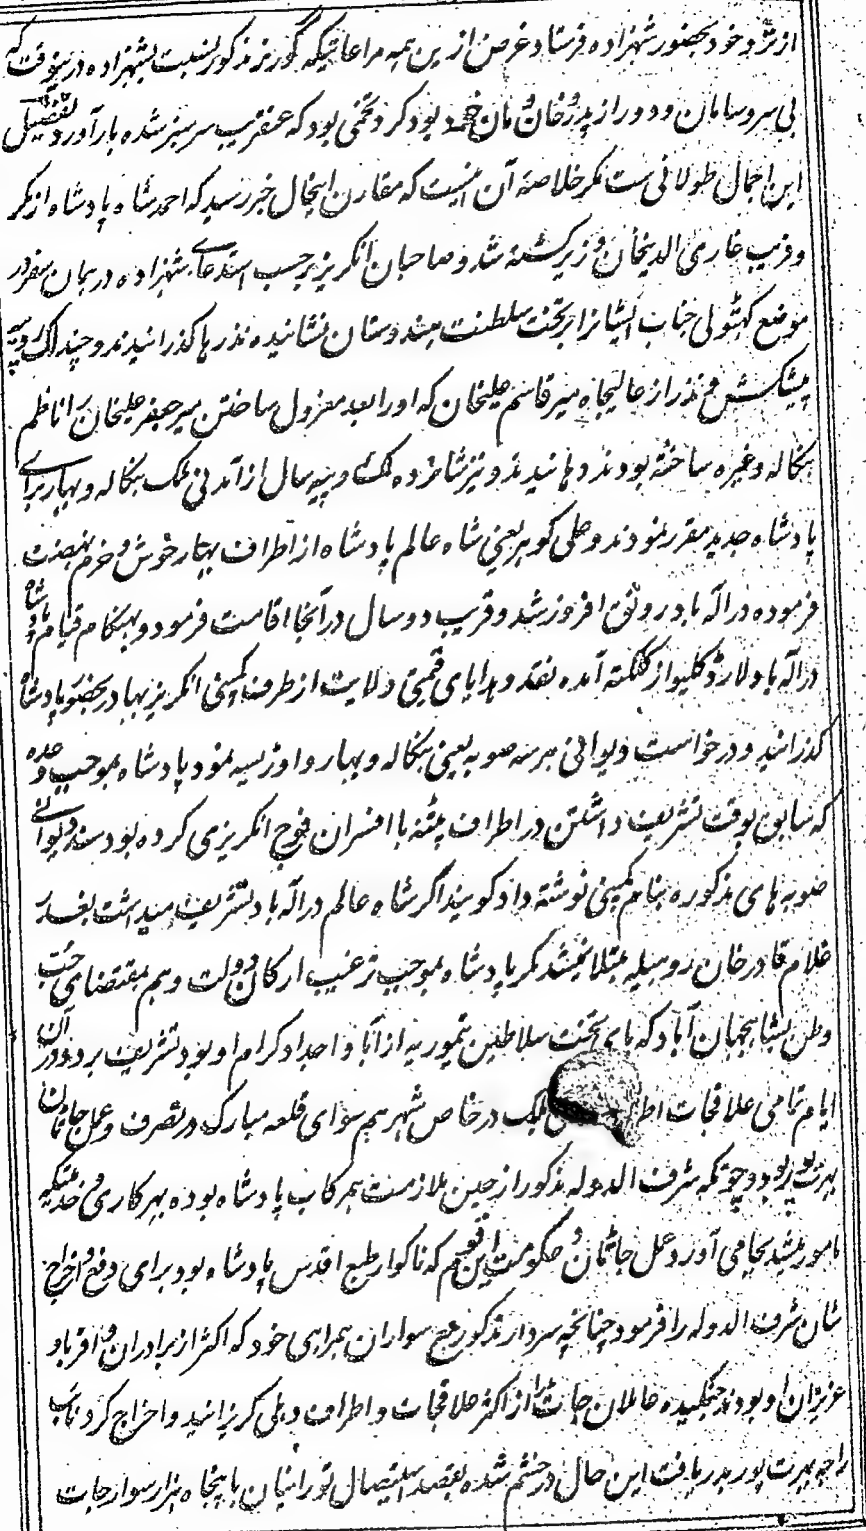 از نزد خود بحضور شهزاده فرستاد غرض ازین همه مراعاتیکه گورنر مذکور نسبت بشهزاده درینوقت که
بی سر و سامان و دور از پدر و خان و مان خود بود کرد تخمی بود که عنقریب سرسبز شده بار آورد تفصیل
این اجمال طولانی ست مگر خلاصهٔ آن اینست که مقارن اینحال خبر رسید که احمد شاه پادشاه از مکر
و فریب غازی الدینخان وزیر کشته شد و صاحبان انگریز برحسب استدعای شهزاده در همان سفر در
موضع کهٹولی جناب ایشانرا بر تخت سلطنت هندوستان نشانیده نذرها گذرانیدند و چند لک روپیه
پیشکش و نذر از عالیجاه میر قاسم علیخان که او را بعد معزول ساختن میر جعفر علیخان ناظم
بنگاله و غیره ساخته بودند دهانیدند و نیز شانزده لک روپیه سال از آمدنی ملک بنگاله و بهار برای
پادشاه جدید مقرر نمودند و علی گوهر یعنی شاه عالم پادشاه از اطراف بهار خوش و خرم نهضت
فرموده در الٰه باد رونق افروز شد و قریب دو سال در آنجا اقامت فرمود و بهنگام قیام پادشاه
در الٰه باد لارڈ کلیو از کلکته آمده نقد و هدایای قیمتی ولایت از طرف کمپنی انگریز بهادر بحضور پادشاه
گذرانید و درخواست دیوانی هر سه صوبه یعنی بنگاله و بهار و اوڑیسه نمود پادشاه بموجب وعده
که سابق بوقت تشریف داشتن در اطراف پٹنه با افسران فوج انگریزی کرده بود سند دیوانی
صوبه های مذکوره بنام کمپنی نوشته داد گویند اگر شاه عالم در الٰه باد تشریف میداشت بغدر
غلام قادر خان روهیله مبتلا نمیشد مگر پادشاه بموجب ترغیب ارکان دولت و هم بمقتضای حب
وطن بشاهجهان آباد که پای تخت سلاطین تیموریه از آبا و اجداد کرام او بود تشریف برد و در آن
ایام تمامی علاقجات ملک در خاص شهر هم سوای قلعه مبارک در تصرف و عمل جاٹان
بهرت پور بود و چونکه شرف الدوله مذکور از حین ملازمت همرکاب پادشاه بوده بهر کاری و خدمتیکه
مامور میشد بجا می آورد عمل جاٹان و حکومت این قوم که ناگوار طبع اقدس پادشاه بود برای دفع و اخراج
شان شرف الدوله را فرمود چنانچه سردار مذکور مع سواران همراهی خود که اکثر از برادران و اقربا و
عزیزان او بودند جنگیده عاملان جاٹ را از اکثر علاقجات و اطراف دهلی گریزانید و اخراج کرد
راجه بهرت پور بدریافت این حال در خشم شده بقصد استیصال تورانیان با پنجاه هزار سوار جاٹ